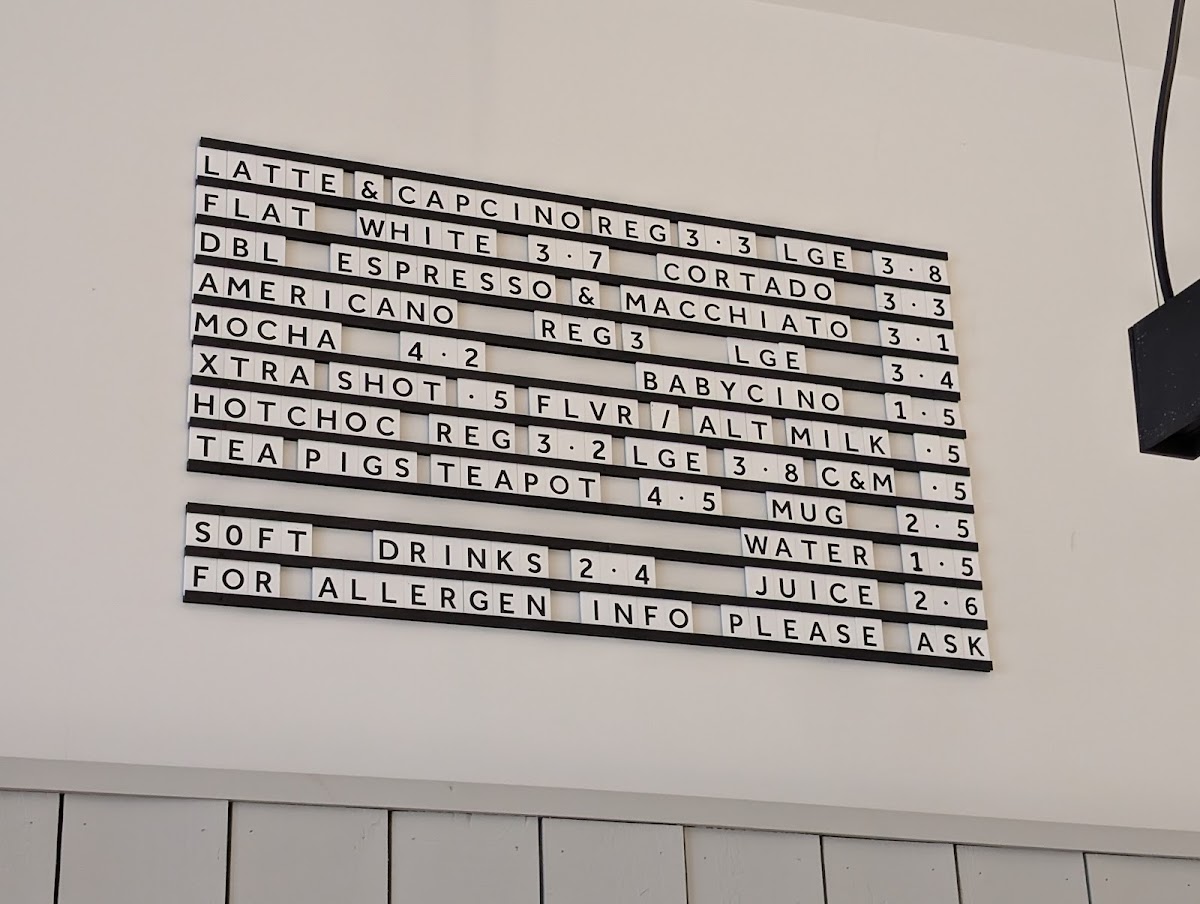 LATTE & CAPCINO REG 3·3 LGE 3·8
FLAT WHITE 3·7 CORTADO 3·3
DBL ESPRESSO & MACCHIATO 3·1
AMERICANO REG 3 LGE 3·4
MOCHA 4·2 BABYCINO 1·5
XTRA SHOT ·5 FLVR / ALT MILK ·5
HOTCHOC REG 3·2 LGE 3·8 C&M ·5
TEA PIGS TEAPOT 4·5 MUG 2·5
WATER 1·5
SOFT DRINKS 2·4 JUICE 2·6
FOR ALLERGEN INFO PLEASE ASK